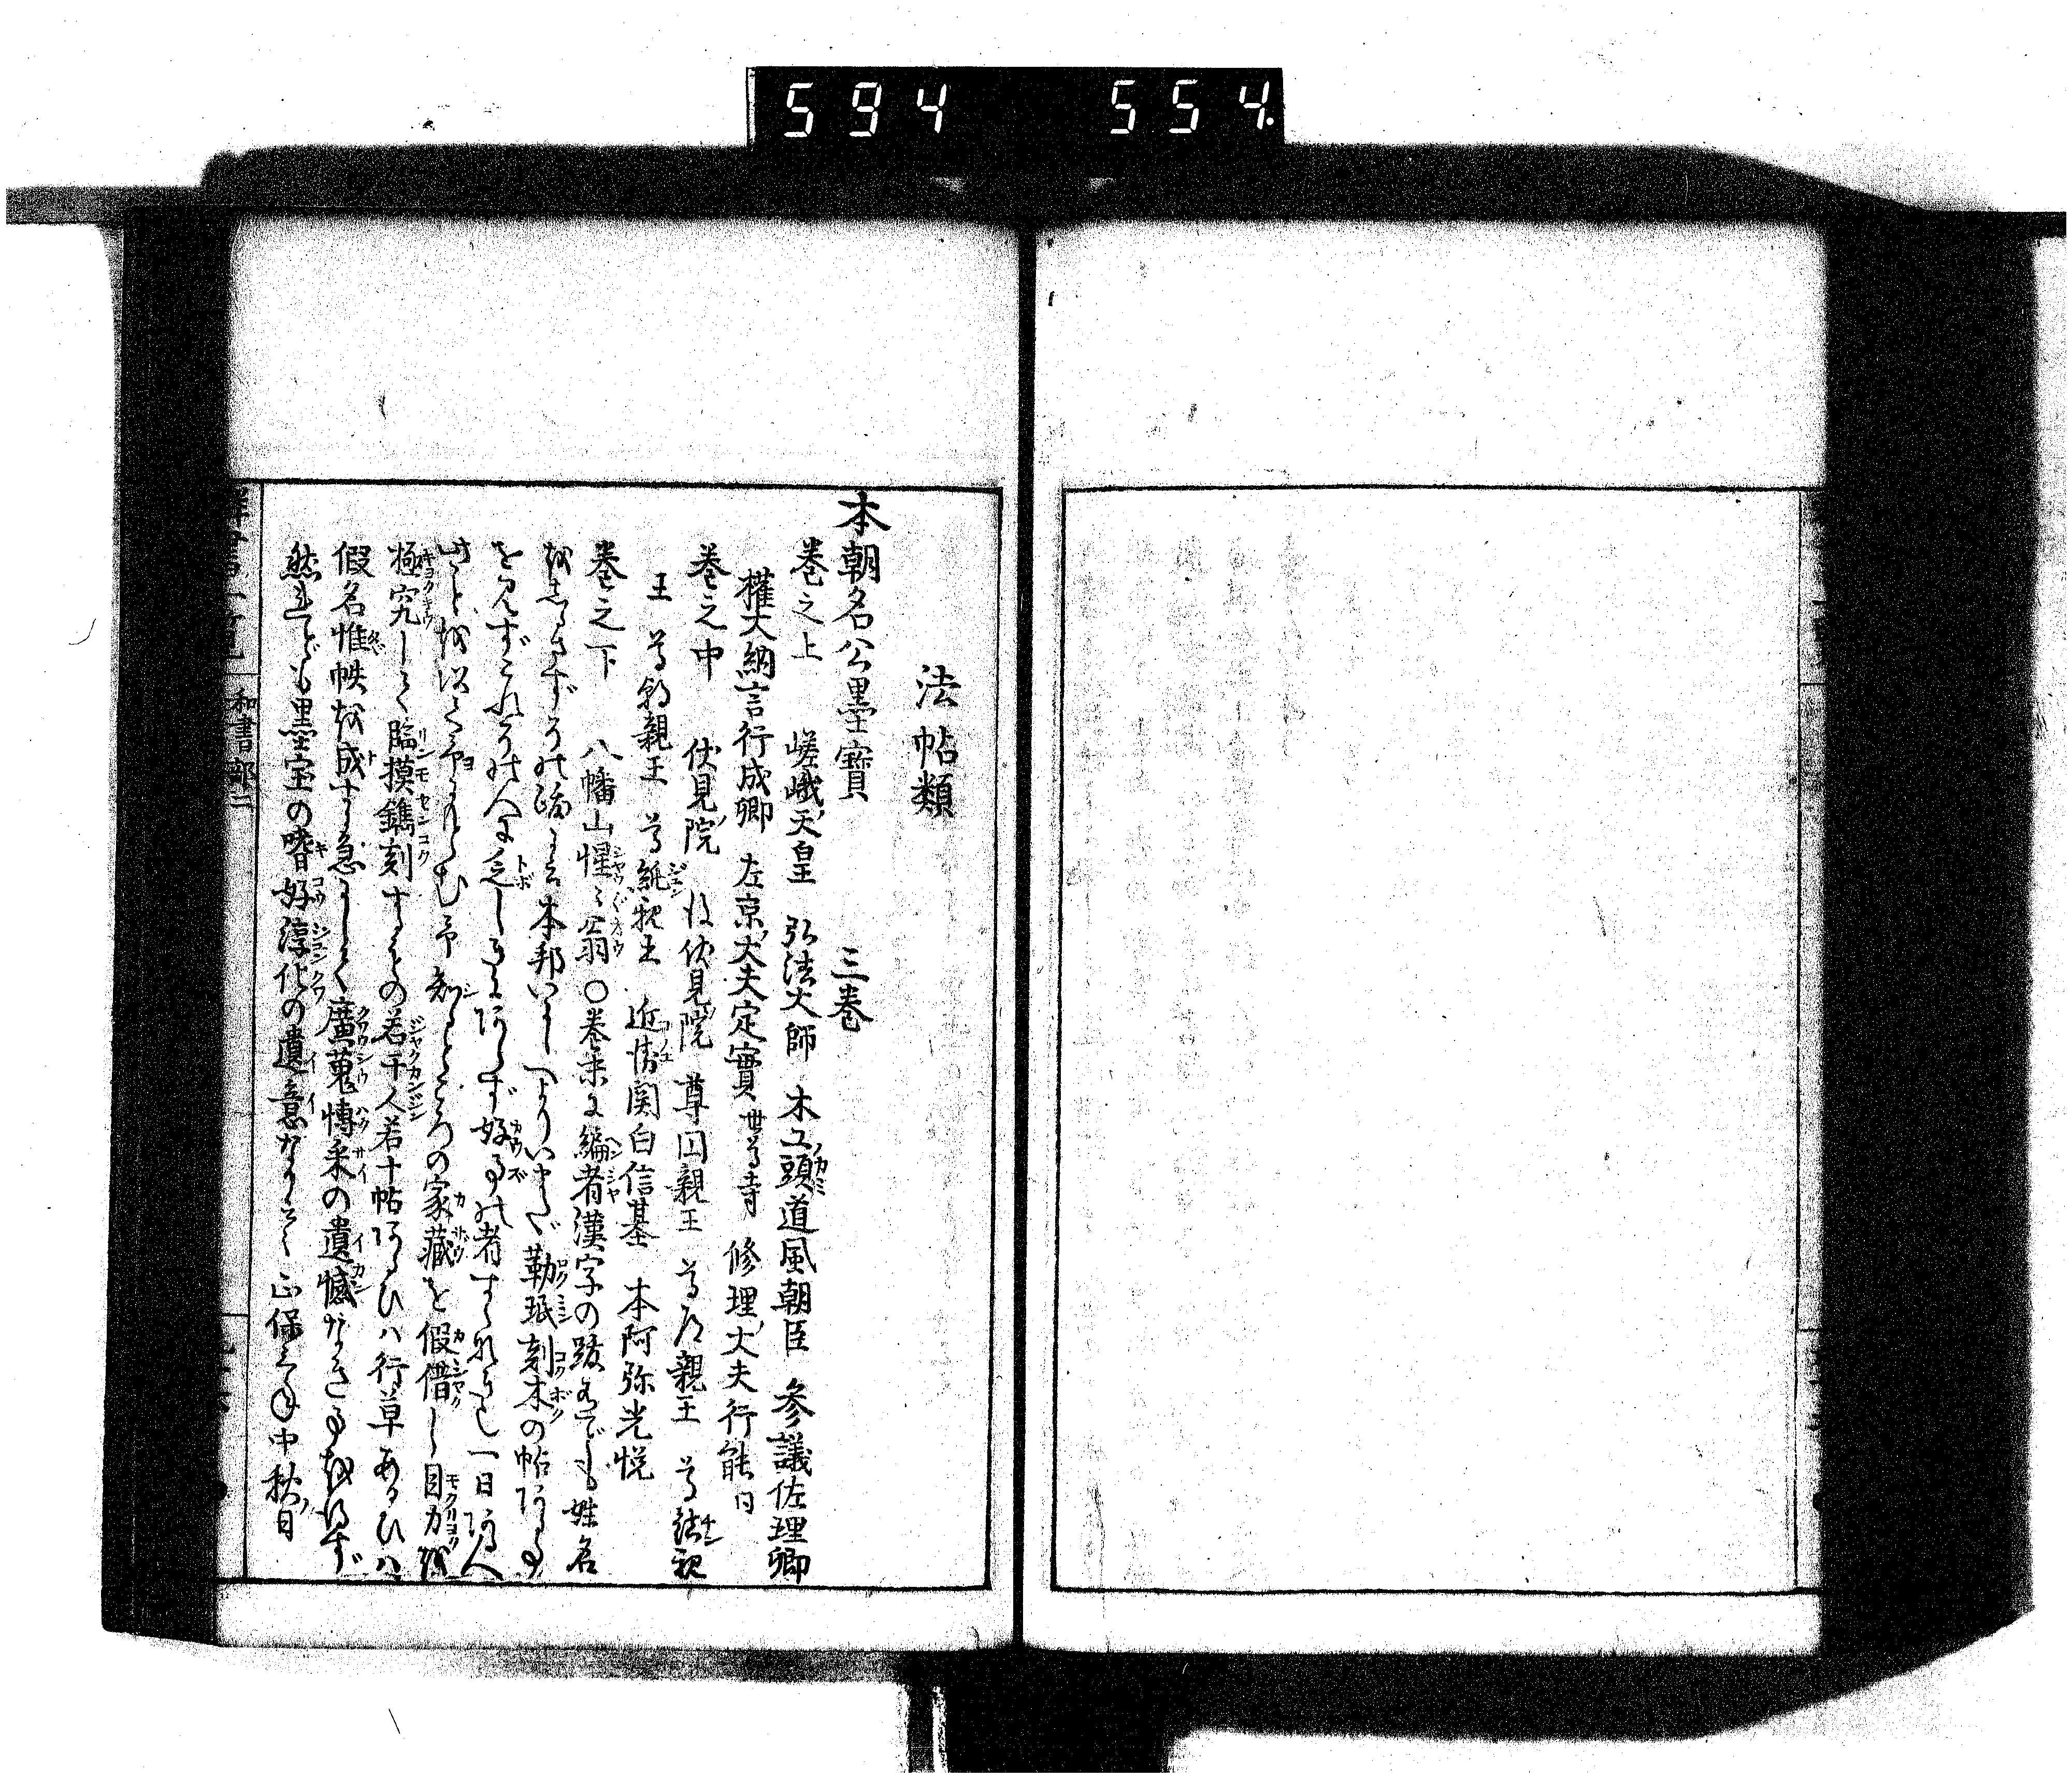 594 554.
法帖類
本朝名公墨寶 三巻
巻之上 嵯峨天皇 弘法大師 木工頭道風朝臣 参議佐理卿
權大納言行成卿 左京大夫定實 世尊寺 修理大夫行能 同
巻之中 伏見院 後伏見院 尊円親王 尊道親王 尊 親
王 尊朝親王 尊純親王 近衛関白信基 本阿弥光悦
巻之下 八幡山惺々翁 ○巻末に編者漢字の跋あれども姓名
をしるさずその論に云本邦いにしへよりいまだ勒珉刻木の帖ある事
を見ずこれその人に乏しきにあらず好事の者すくなければ也一日ある人
此ことを以て予にもとむ予知るところの家藏を假借し目力を
極究して臨摸鐫刻するもの若干人若干帖あるひハ行草あるひハ
假名惟帙を成す急にして廣蒐博采の遺憾なき事を得ず
然れども墨宝の嗜好淳化の遺意なりと云 正保 年中秋日
和書部二